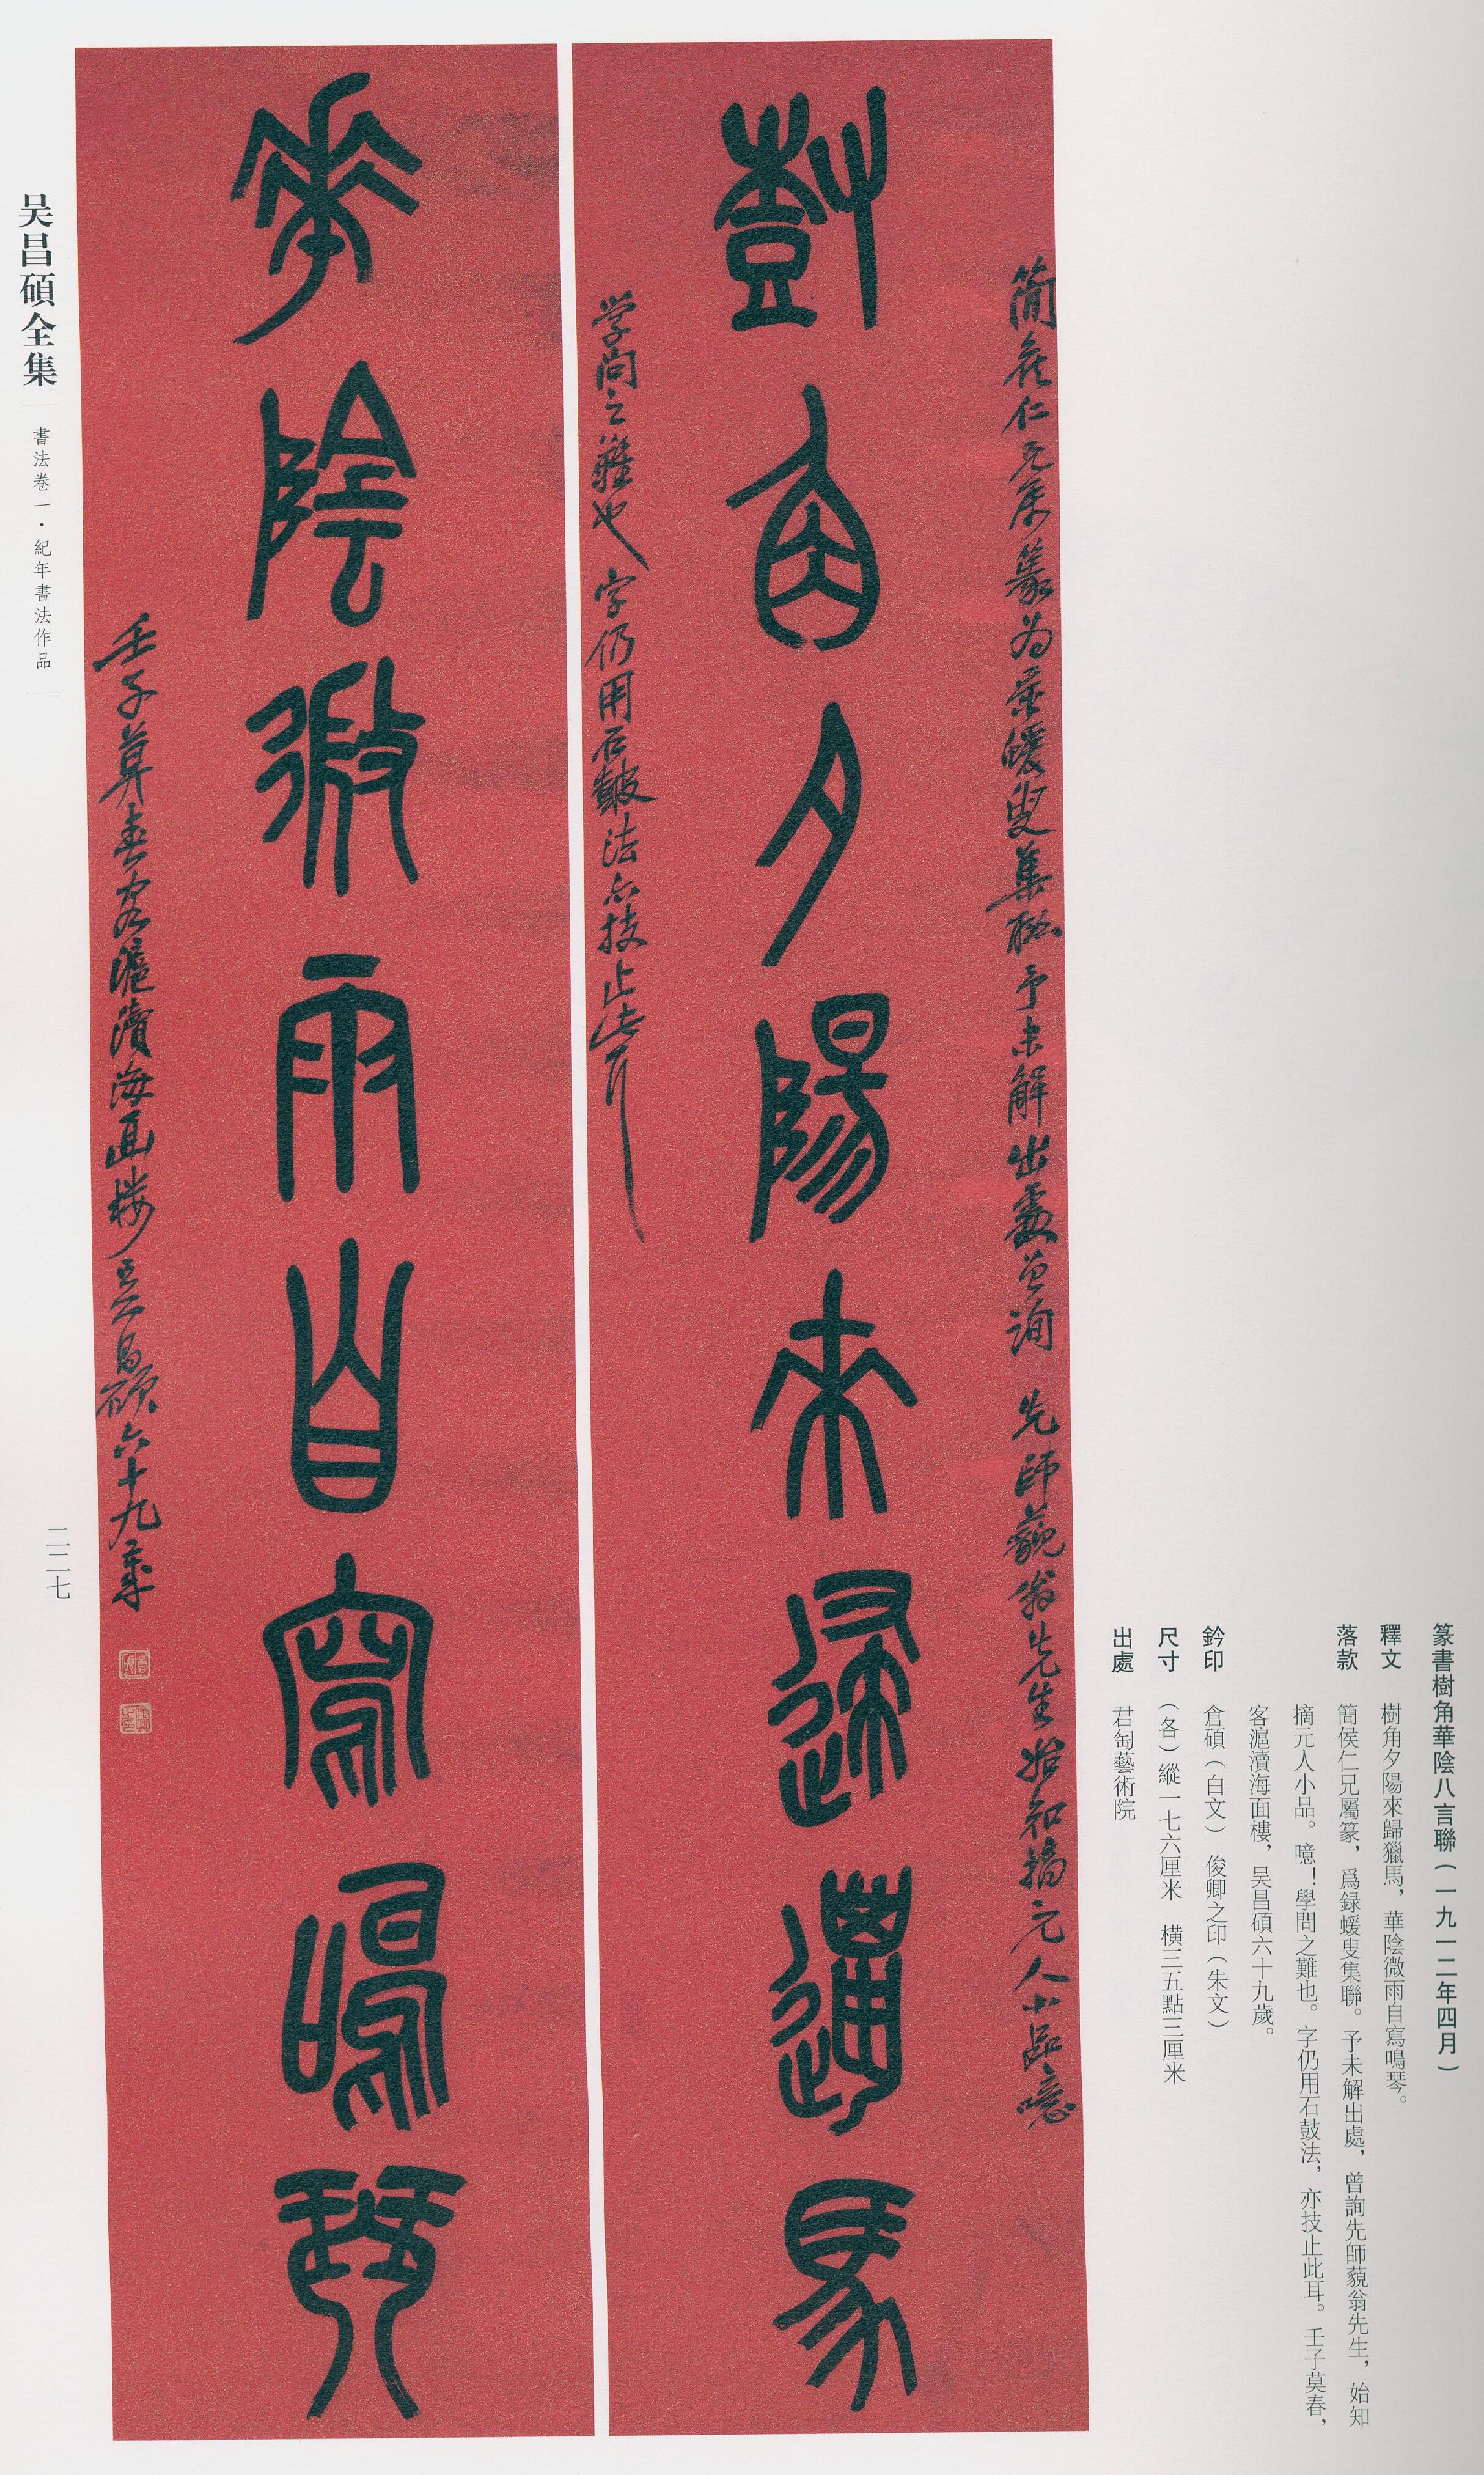 篆書樹角華陰八言聯（一九一二年四月）
釋文　樹角夕陽來歸獵馬，華陰微雨自寫鳴琴。
落款　簡侯仁兄屬篆，爲録蝯叟集聯。予未解出處，曾詢先師藐翁先生，始知
摘元人小品。噫！學問之難也。字仍用石鼓法，亦技止此耳。壬子莫春，
客滬瀆海面樓，吴昌碩六十九歲。
鈐印　倉碩（白文）　俊卿之印（朱文）
尺寸　（各）縱一七六厘米　横三五點三厘米
出處　君匋藝術院
簡矦仁兄属篆为录蝯叟集聮予未解出處曾询　先師藐翁先生始知摘元人小品噫
樹角夕陽來歸邋馬
学问之難也字仍用石鼓法亦技止此耳
華陰微雨自寫鳴琴
壬子莫春客滬瀆海面楼吴昌碩六十九歲
吴昌碩全集
書法卷一・紀年書法作品
二二七